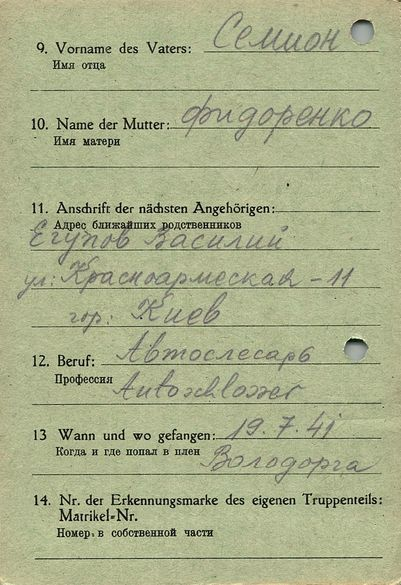 9. Vorname des Vaters: Семион
Имя отца
10. Name der Mutter: Фидоренко
Имя матери
11. Anschrift der nächsten Angehörigen:
Адрес ближайших родственников
Егупов Василий
ул: Красноармеская - 11
гор: Киев
12. Beruf: Автослесарь
Профессия
Autoschlosser
13 Wann und wo gefangen: 19.7.41
Когда и где попал в плен
Вологорга
14. Nr. der Erkennungsmarke des eigenen Truppenteils:
Matrikel-Nr.
Номер. в собственной части